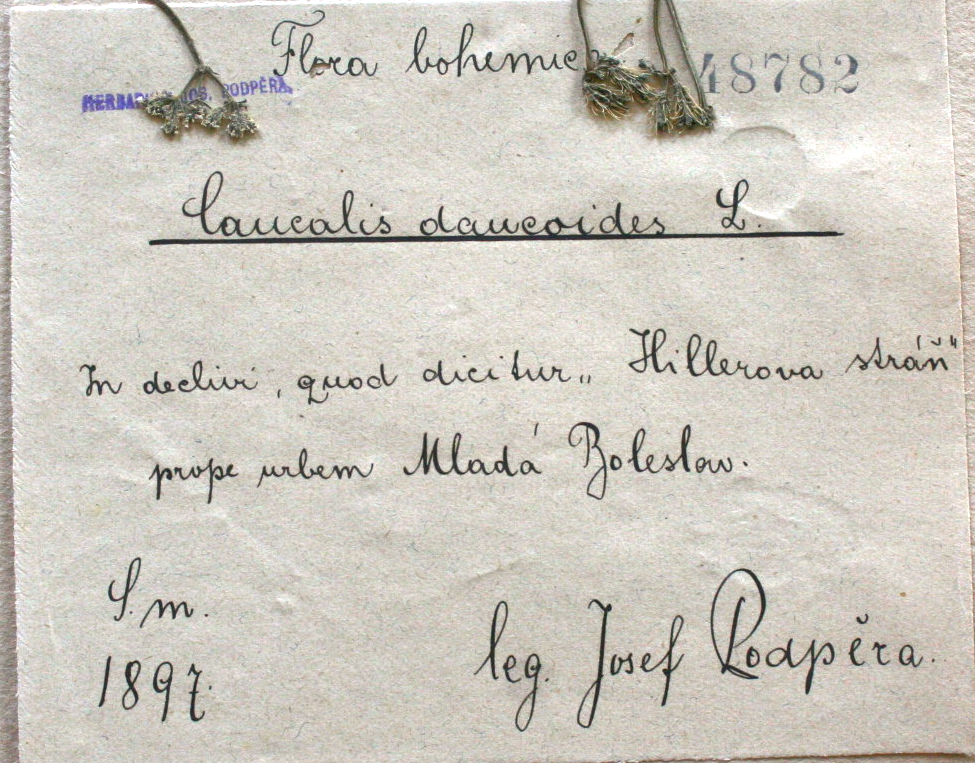 Flora bohemic
48782
HERBAR JOS. PODPĚRA.
Caucalis daucoides L.
In declivi, quod dicitur „Hillerova stráň"
prope urbem Mladá Boleslav.
S. m.
1897.
leg. Josef Podpěra.